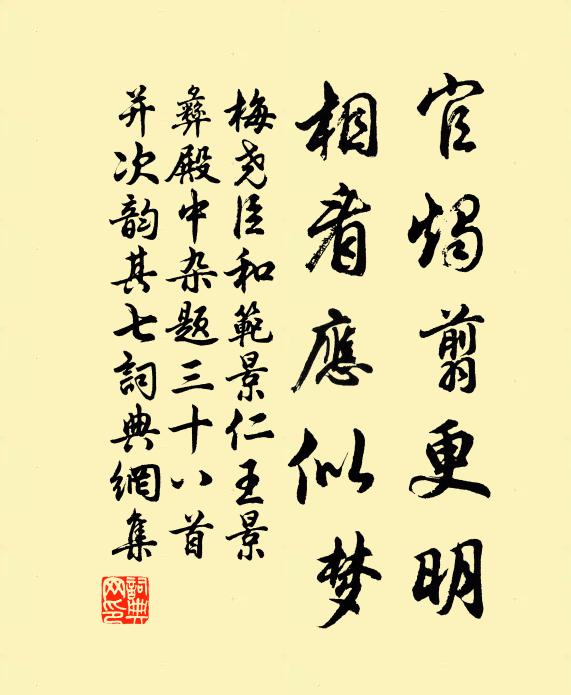 官烛翦更明
相看應似梦
梅尧臣和範景仁王景
彝殿中杂题三十八首
并次韵其七詞典網集
詞典網印